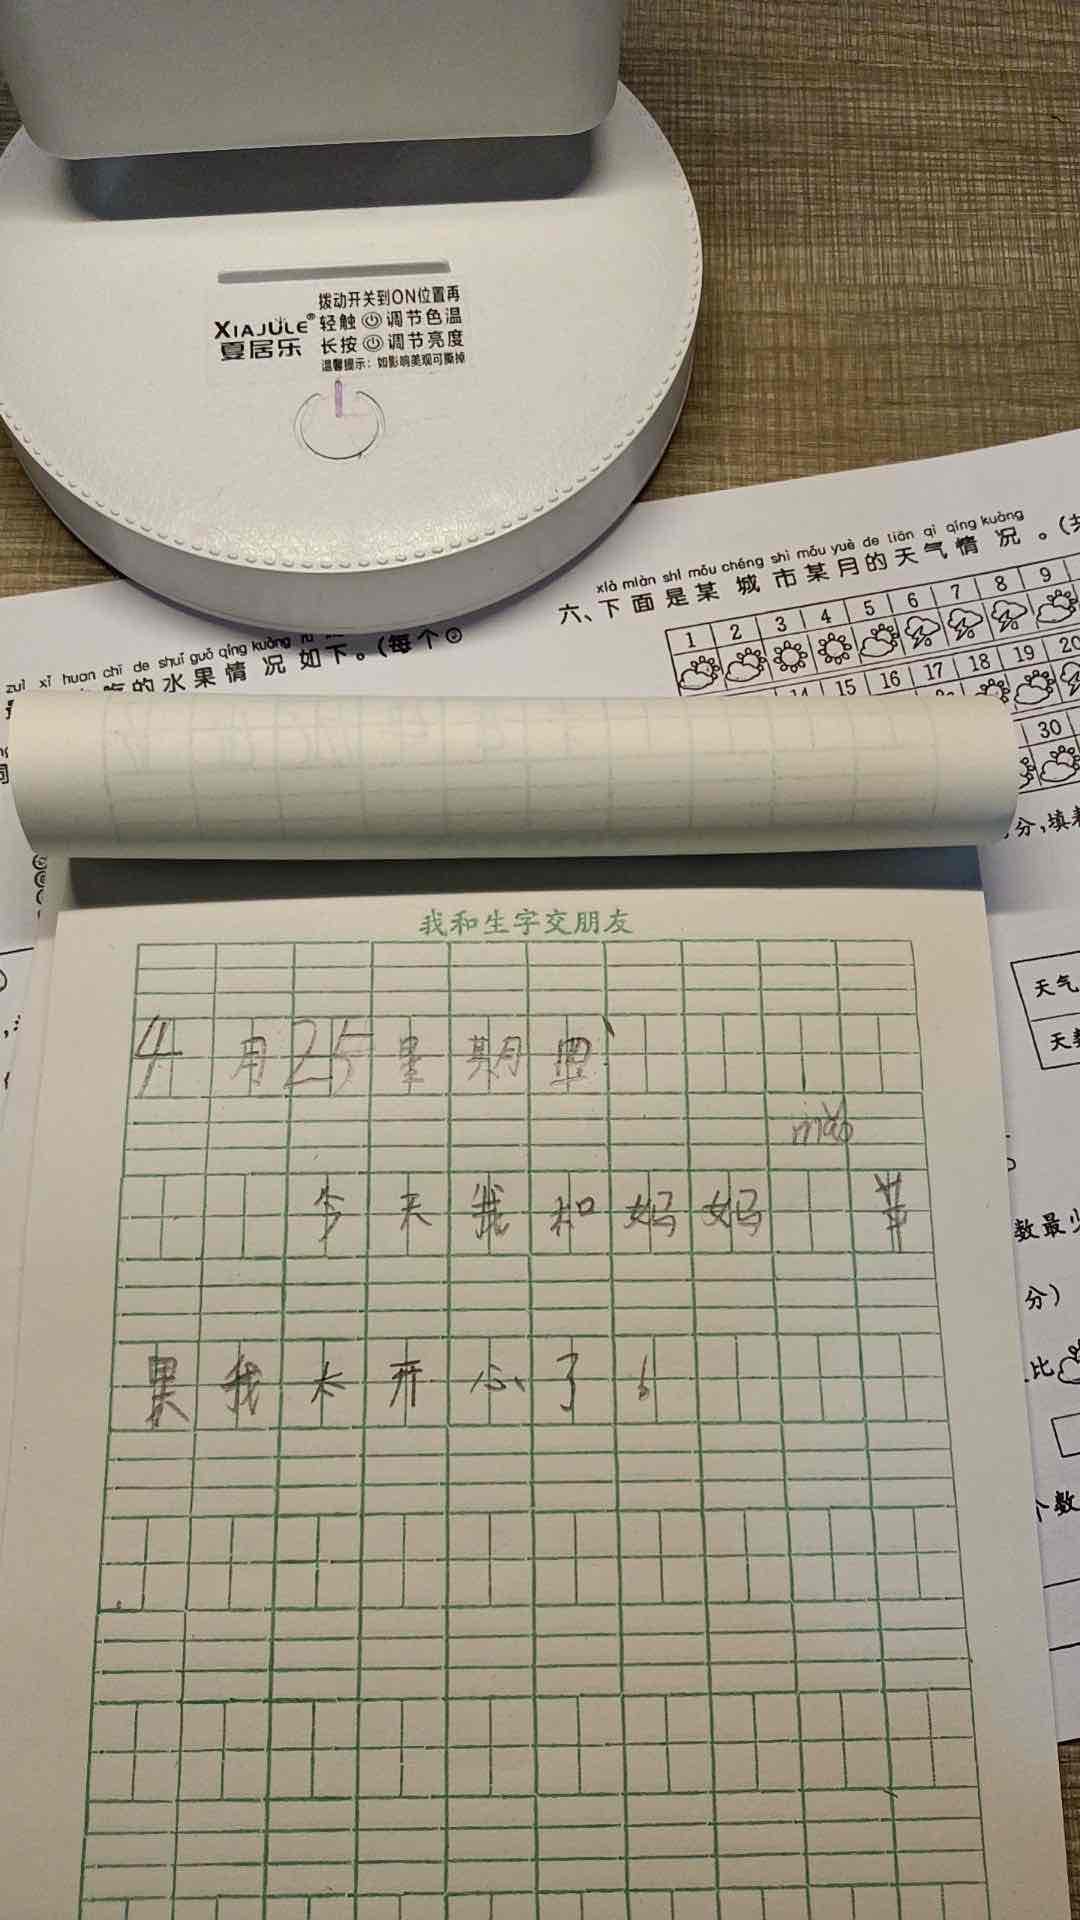 拨动开关到ON位置再
XIAJULE® 轻触 调节色温
夏居乐 长按 调节亮度
温馨提示：如影响美观可撕掉
xià miàn shì mǒu chéng shì mǒu yuè de tiān qì qíng kuàng
六、下面是某城市某月的天气情况。(共
1 2 3 4 5 6 7 8 9
14 15 16 17 18 19 20
30
zuì xǐ huan chī de shuǐ guǒ qíng kuàng rú
吃的水果情况如下。(每个☺
分,填表
天气
天数
数最少
分)
比
个数
我和生字交朋友
4月25星期四
今天我和妈妈 苹
果我太开心了!